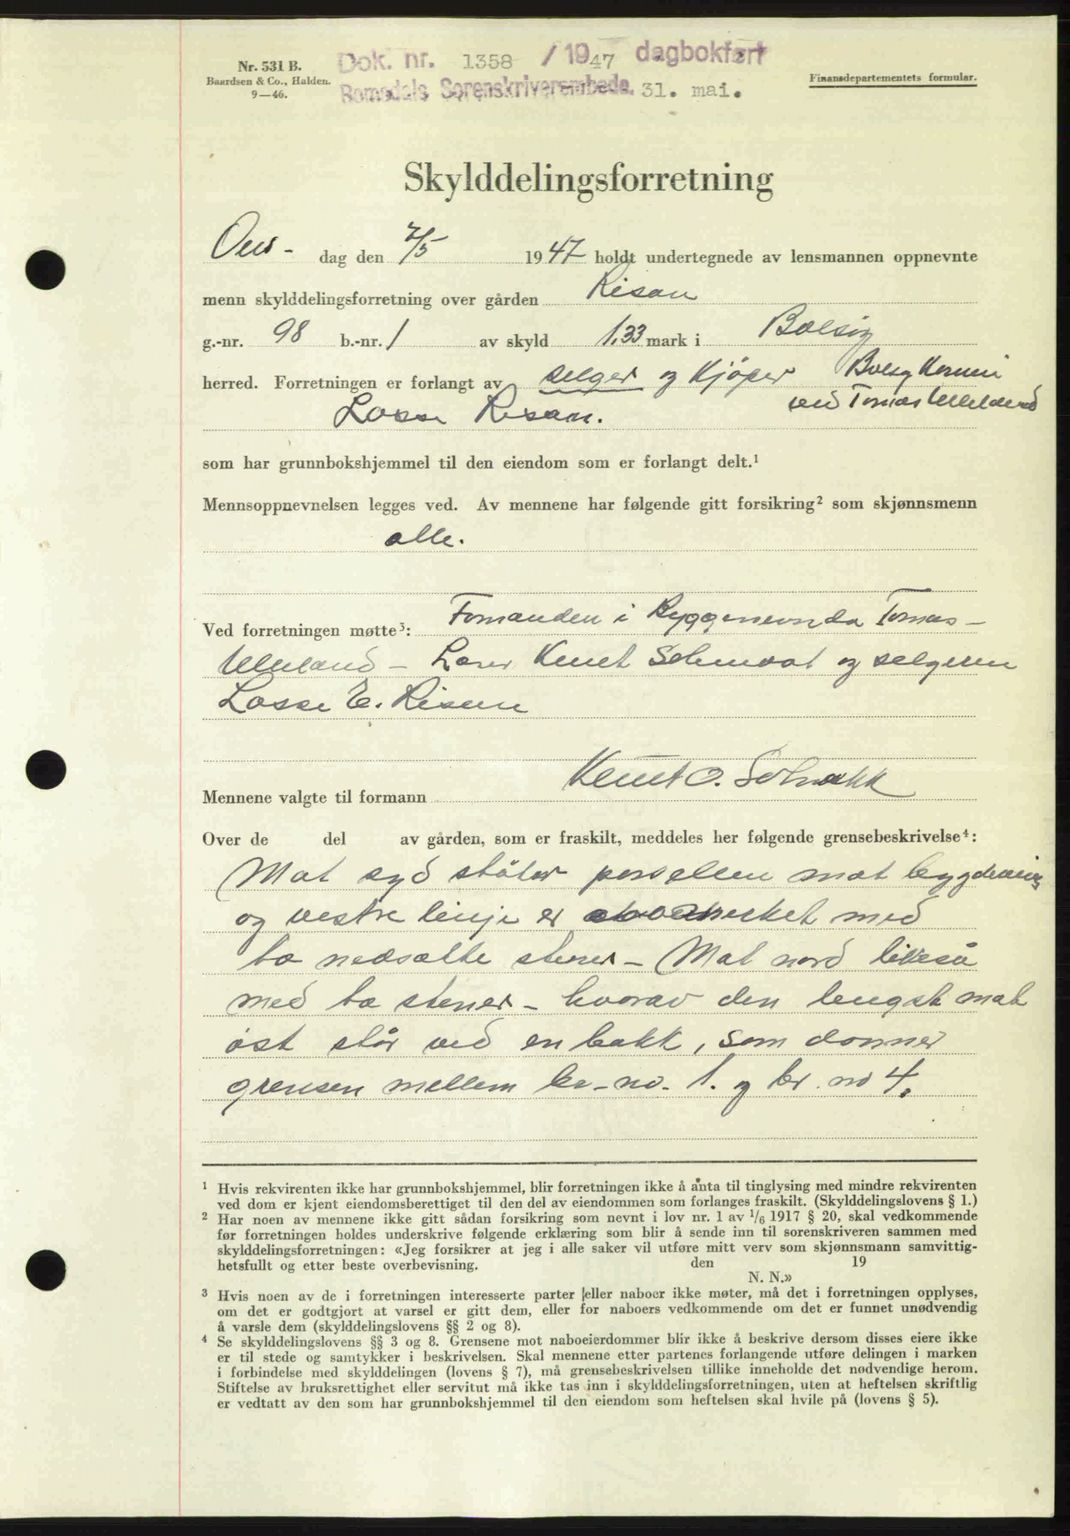 Nr. 531 B.
Baardsen & Co., Halden.
9—46.
Dok. nr. 1358 / 1947 dagbokført
Romsdals Sorenskriverembede. 31. mai.
Finansdepartementets formular.
Skylddelingsforretning
Ons- dag den 7/5 1947 holdt undertegnede av lensmannen oppnevnte
menn skylddelingsforretning over gården Risan
g.-nr. 98 b.-nr. 1 av skyld 1,33 mark i Bolsøy
herred. Forretningen er forlangt av selger og Kjøper Bolsøy
ved Tomas
Lasse Risan.
som har grunnbokshjemmel til den eiendom som er forlangt delt.¹
Mennsoppnevnelsen legges ved. Av mennene har følgende gitt forsikring² som skjønnsmenn
alle.
Ved forretningen møtte³: Formanden i Byggenevnda Tomas
Ulleland - Knut og selgeren
Lasse E. Risan
Mennene valgte til formann Knut O.
Over de del av gården, som er fraskilt, meddeles her følgende grensebeskrivelse⁴:
Mot syd støter porsellen mot bygdeveig
og vestre linje er med
to nedsatte stener - Mot nord likeså
med to stener - hvorav den lengst mot
øst står ved en bekk, som danner
grensen mellem br. no. 1. og br. no 4.
¹ Hvis rekvirenten ikke har grunnbokshjemmel, blir forretningen ikke å anta til tinglysing med mindre rekvirenten
ved dom er kjent eiendomsberettiget til den del av eiendommen som forlanges fraskilt. (Skylddelingslovens § 1.)
² Har noen av mennene ikke gitt sådan forsikring som nevnt i lov nr. 1 av 1/6 1917 § 20, skal vedkommende
før forretningen holdes underskrive følgende erklæring som blir å sende inn til sorenskriveren sammen med
skylddelingsforretningen: «Jeg forsikrer at jeg i alle saker vil utføre mitt verv som skjønnsmann samvittig-
hetsfullt og etter beste overbevisning. den 19
N. N.»
³ Hvis noen av de i forretningen interesserte parter eller naboer ikke møter, må det i forretningen opplyses,
om det er godtgjort at varsel er gitt dem, eller for naboers vedkommende om det er funnet unødvendig
å varsle dem (skylddelingslovens §§ 2 og 8).
⁴ Se skylddelingslovens §§ 3 og 8. Grensene mot naboeierdommer blir ikke å beskrive dersom disses eiere ikke
er til stede og samtykker i beskrivelsen. Skal mennene etter partenes forlangende utføre delingen i marken
i forbindelse med skylddelingen (lovens § 7), må grensebeskrivelsen tillike inneholde det nødvendige herom.
Stiftelse av bruksrettighet eller servitut må ikke tas inn i skylddelingsforretningen, uten at heftelsen skriftlig
er vedtatt av den som har grunnbokshjemmel til den eiendom som heftelsen skal hvile på (lovens § 5).